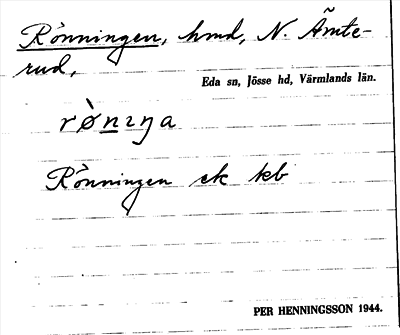 Rönningen, hmd, N. Ämte-
rud,
Eda sn, Jösse hd, Värmlands län.
rø̀nıŋa
Rönningen ek kb
PER HENNINGSSON 1944.